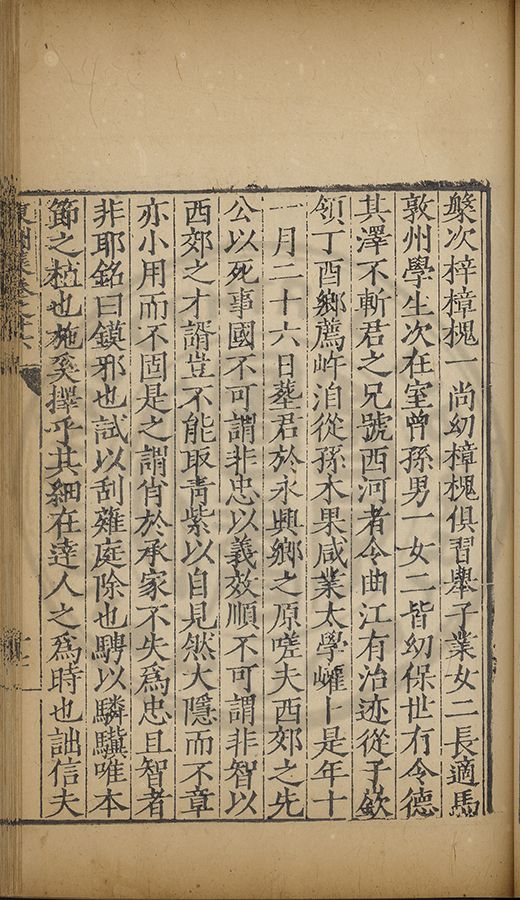 槃次梓樟槐一尚幼樟槐俱習舉子業女二長適馬
敦州學生次在室曾孫男一女二皆幼保世有令德
其澤不斬君之兄號西河者令曲江有治迹從子欽
領丁酉鄉薦㟁洎從孫木果咸業太學㠠卜是年十
一月二十六日塟君於永興鄉之原嗟夫西郊之先
公以死事國不可謂非忠以義效順不可謂非智以
西郊之才諝豈不能取青紫以自見然大隱而不章
亦小用而不固是之謂肖於承家不失爲忠且智者
非耶銘曰鏌邪也試以刮雜庭除也騁以驎驥唯本
節之植也施奚擇乎其細在逹人之爲時也詘信夫